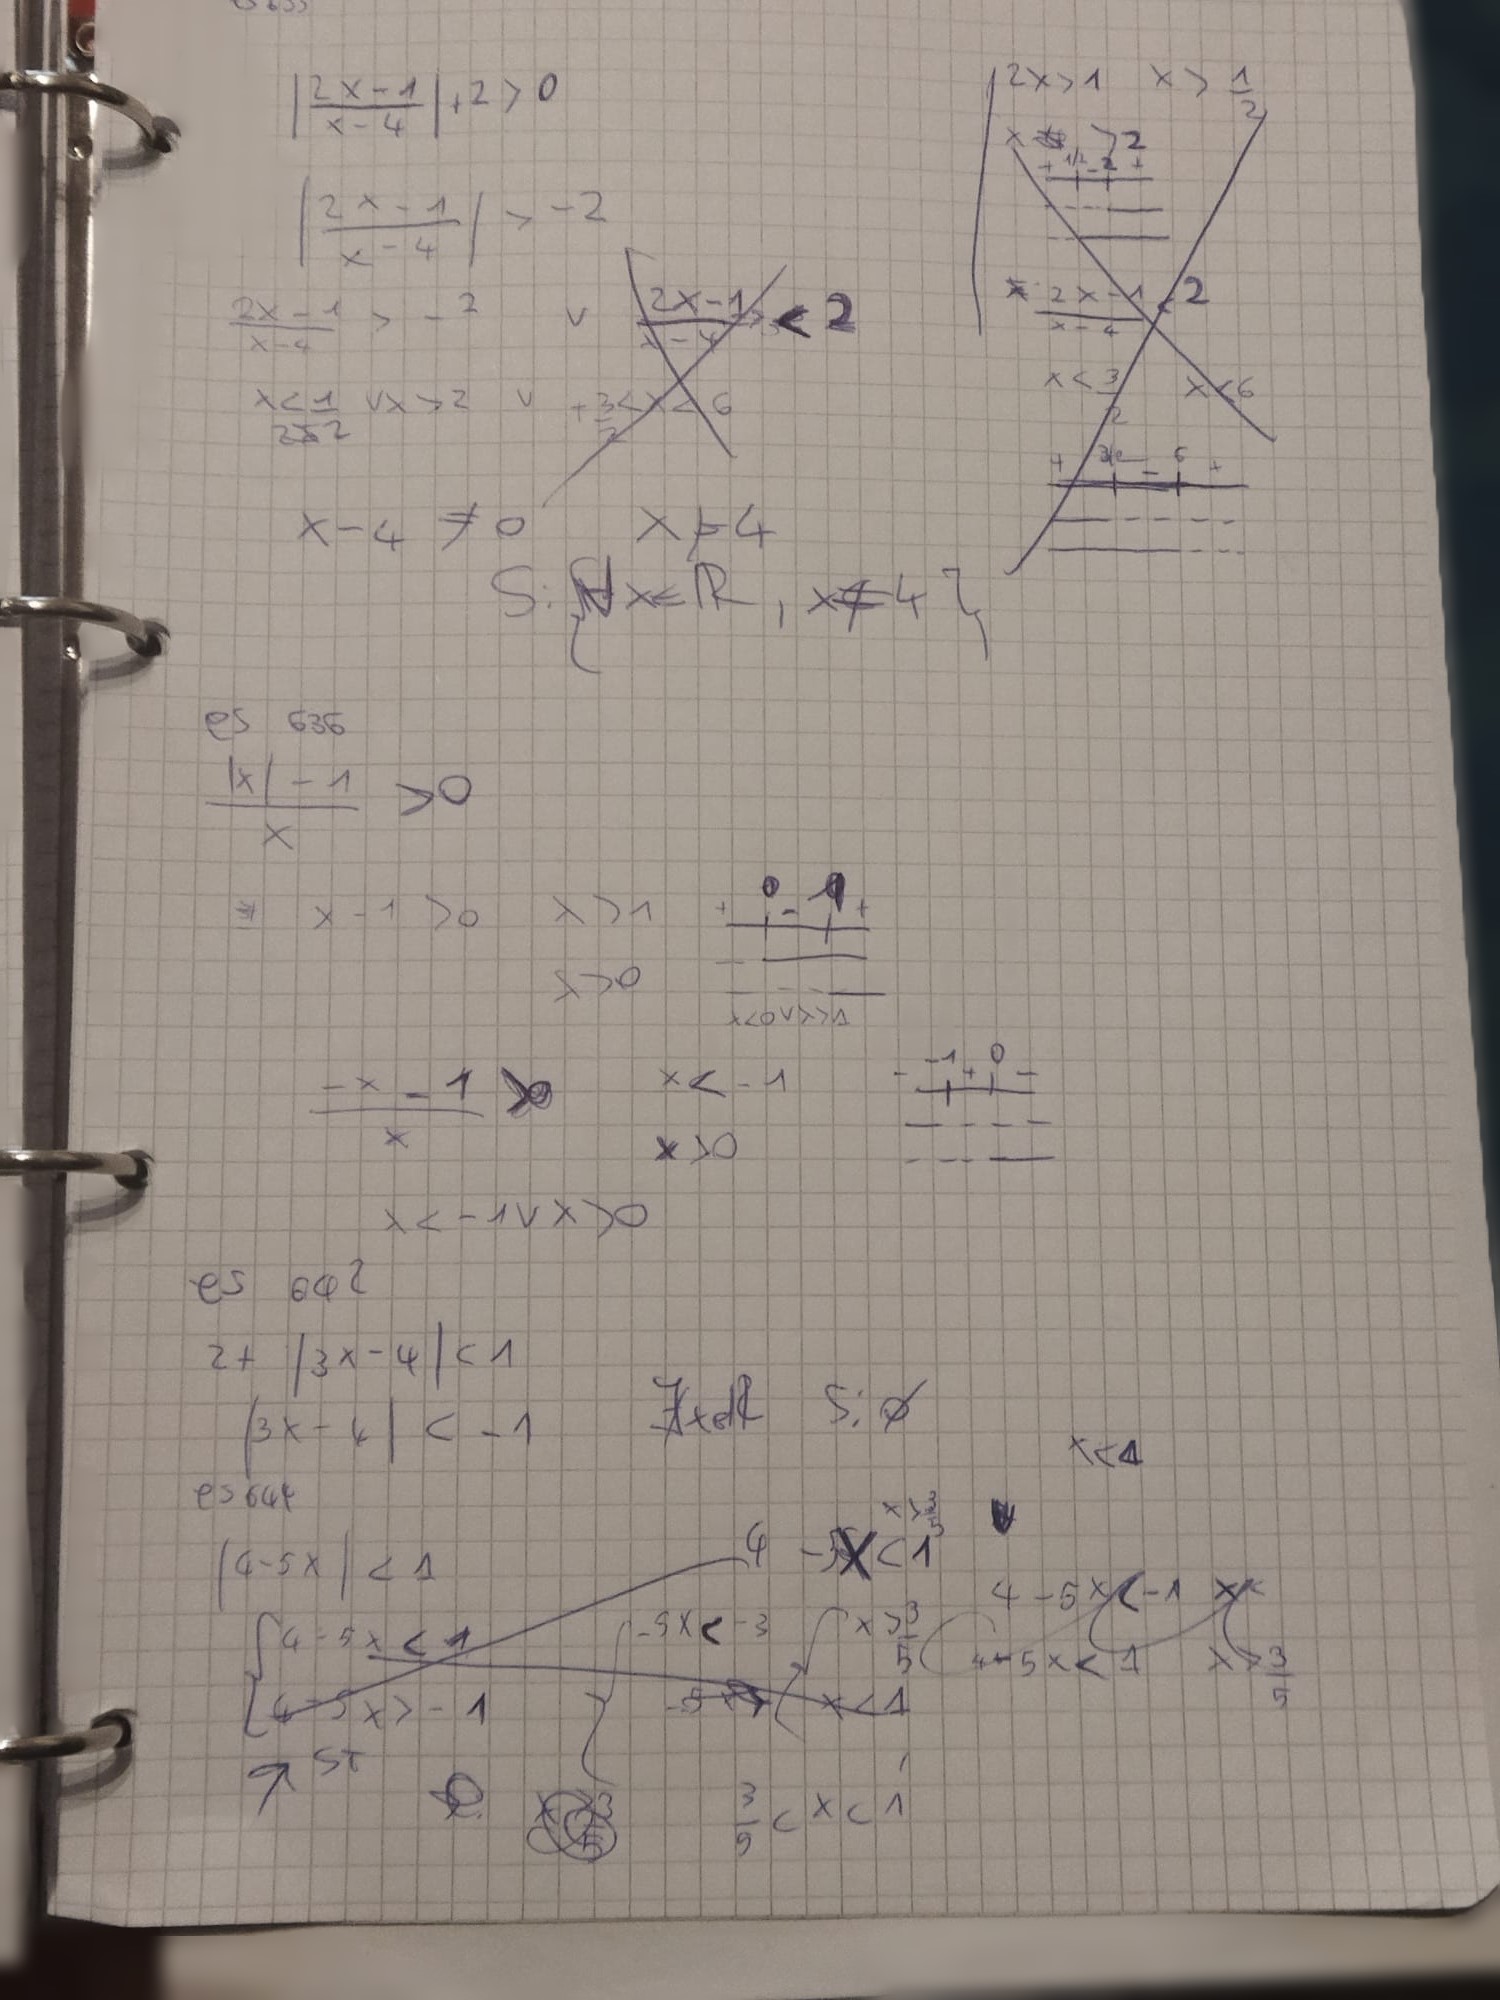 |2x-1/x-4| +2 > 0
|2x-1/x-4| > -2
2x-1/x-4 > -2 ∨ 2x-1/x-4 < 2
x<1/2 ∨ x>2 ∨ +3/2<x<6
x-4 ≠ 0 x≠4
S: { x∈R, x≠4 }
2x>1 x > 1/2
x >2
+ 1/2 - 2 +
2x-1/x-4 < 2
x<3/2 x<6
+ 3/2 - 6 +
es 636
|x| - 1/x >0
x-1 >0 x>1
x>0
+ 0 - 1 +
x<0∨x>1
-x-1/x >0 x<-1
x>0
- -1 + 0 -
x<-1∨x>0
es 642
2+ |3x-4| < 1
|3x-4| < -1 ∄x∈R S: ∅
es 644
|4-5x| < 1
{ 4-5x < 1
4-5x > -1
ST
4 -5x < 1
x>3/5
{ -5x < -3
{ x>3/5
x<1
3/5 < x < 1
x<1
4-5x < -1 x<
4-5x < 1 x>3/5